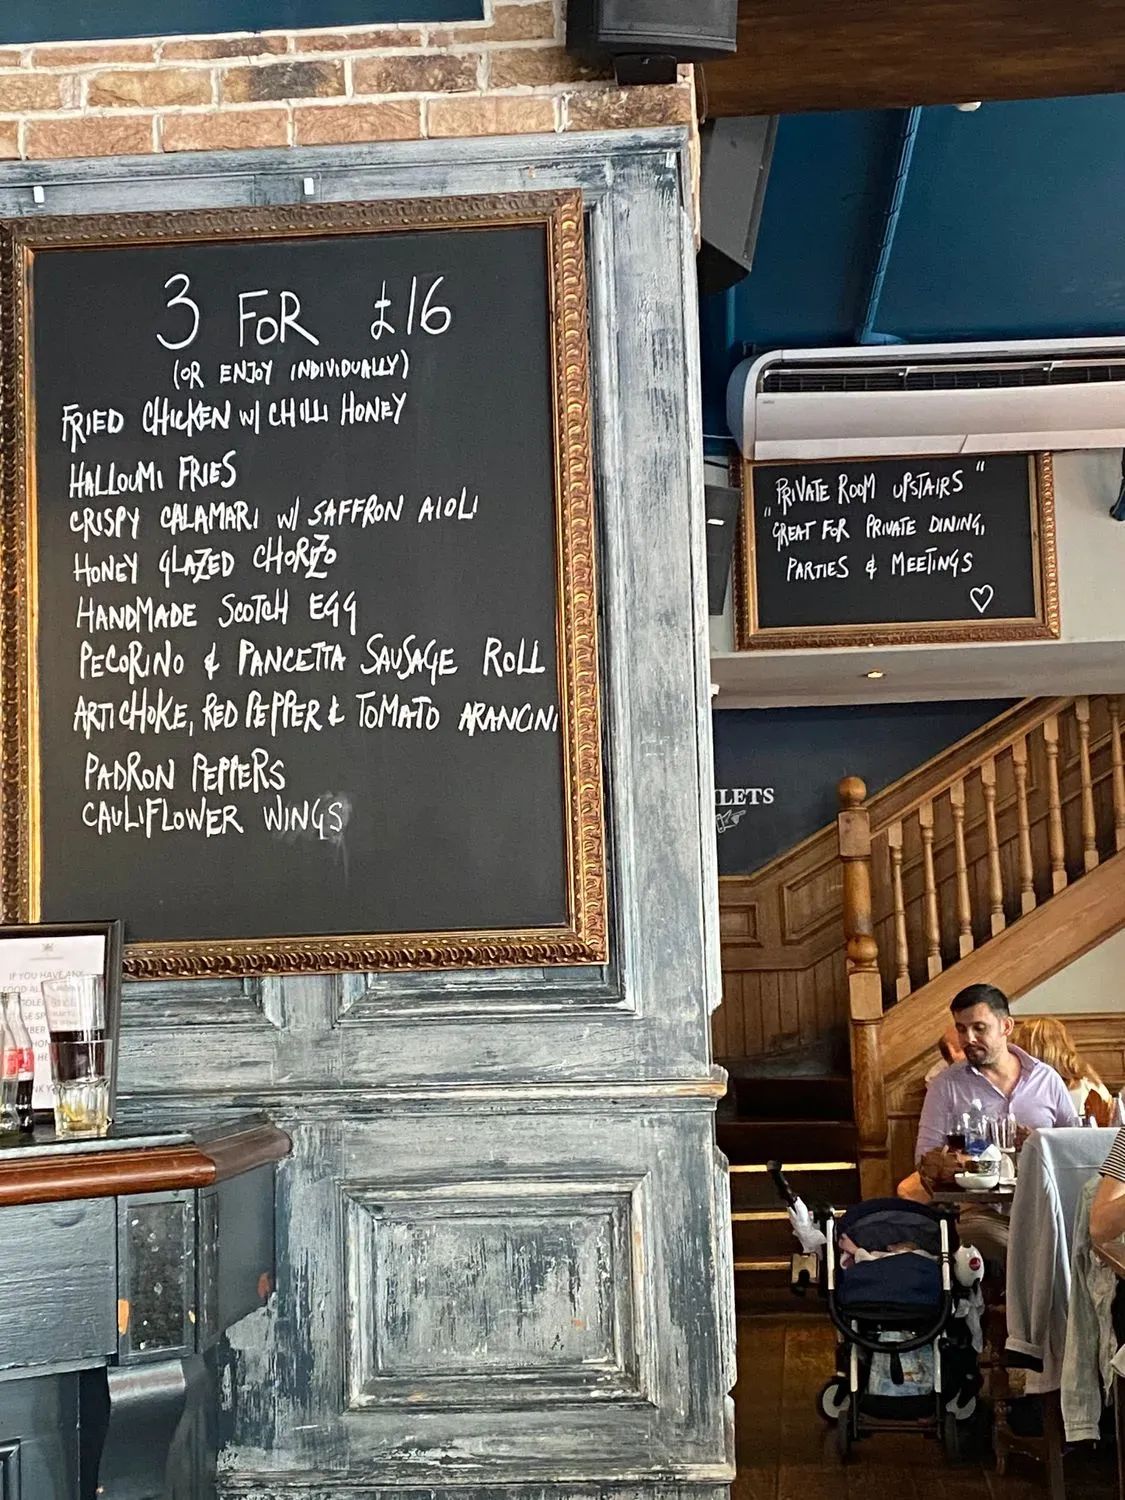 3 FOR £16
(OR ENJOY INDIVIDUALLY)
FRIED CHICKEN W/ CHILLI HONEY
HALLOUMI FRIES
CRISPY CALAMARI W/ SAFFRON AIOLI
HONEY GLAZED CHORIZO
HANDMADE SCOTCH EGG
PECORINO & PANCETTA SAUSAGE ROLL
ARTICHOKE, RED PEPPER & TOMATO ARANCINI
PADRON PEPPERS
CAULIFLOWER WINGS
"PRIVATE ROOM UPSTAIRS"
"GREAT FOR PRIVATE DINING,
PARTIES & MEETINGS
IF YOU HAVE ANY